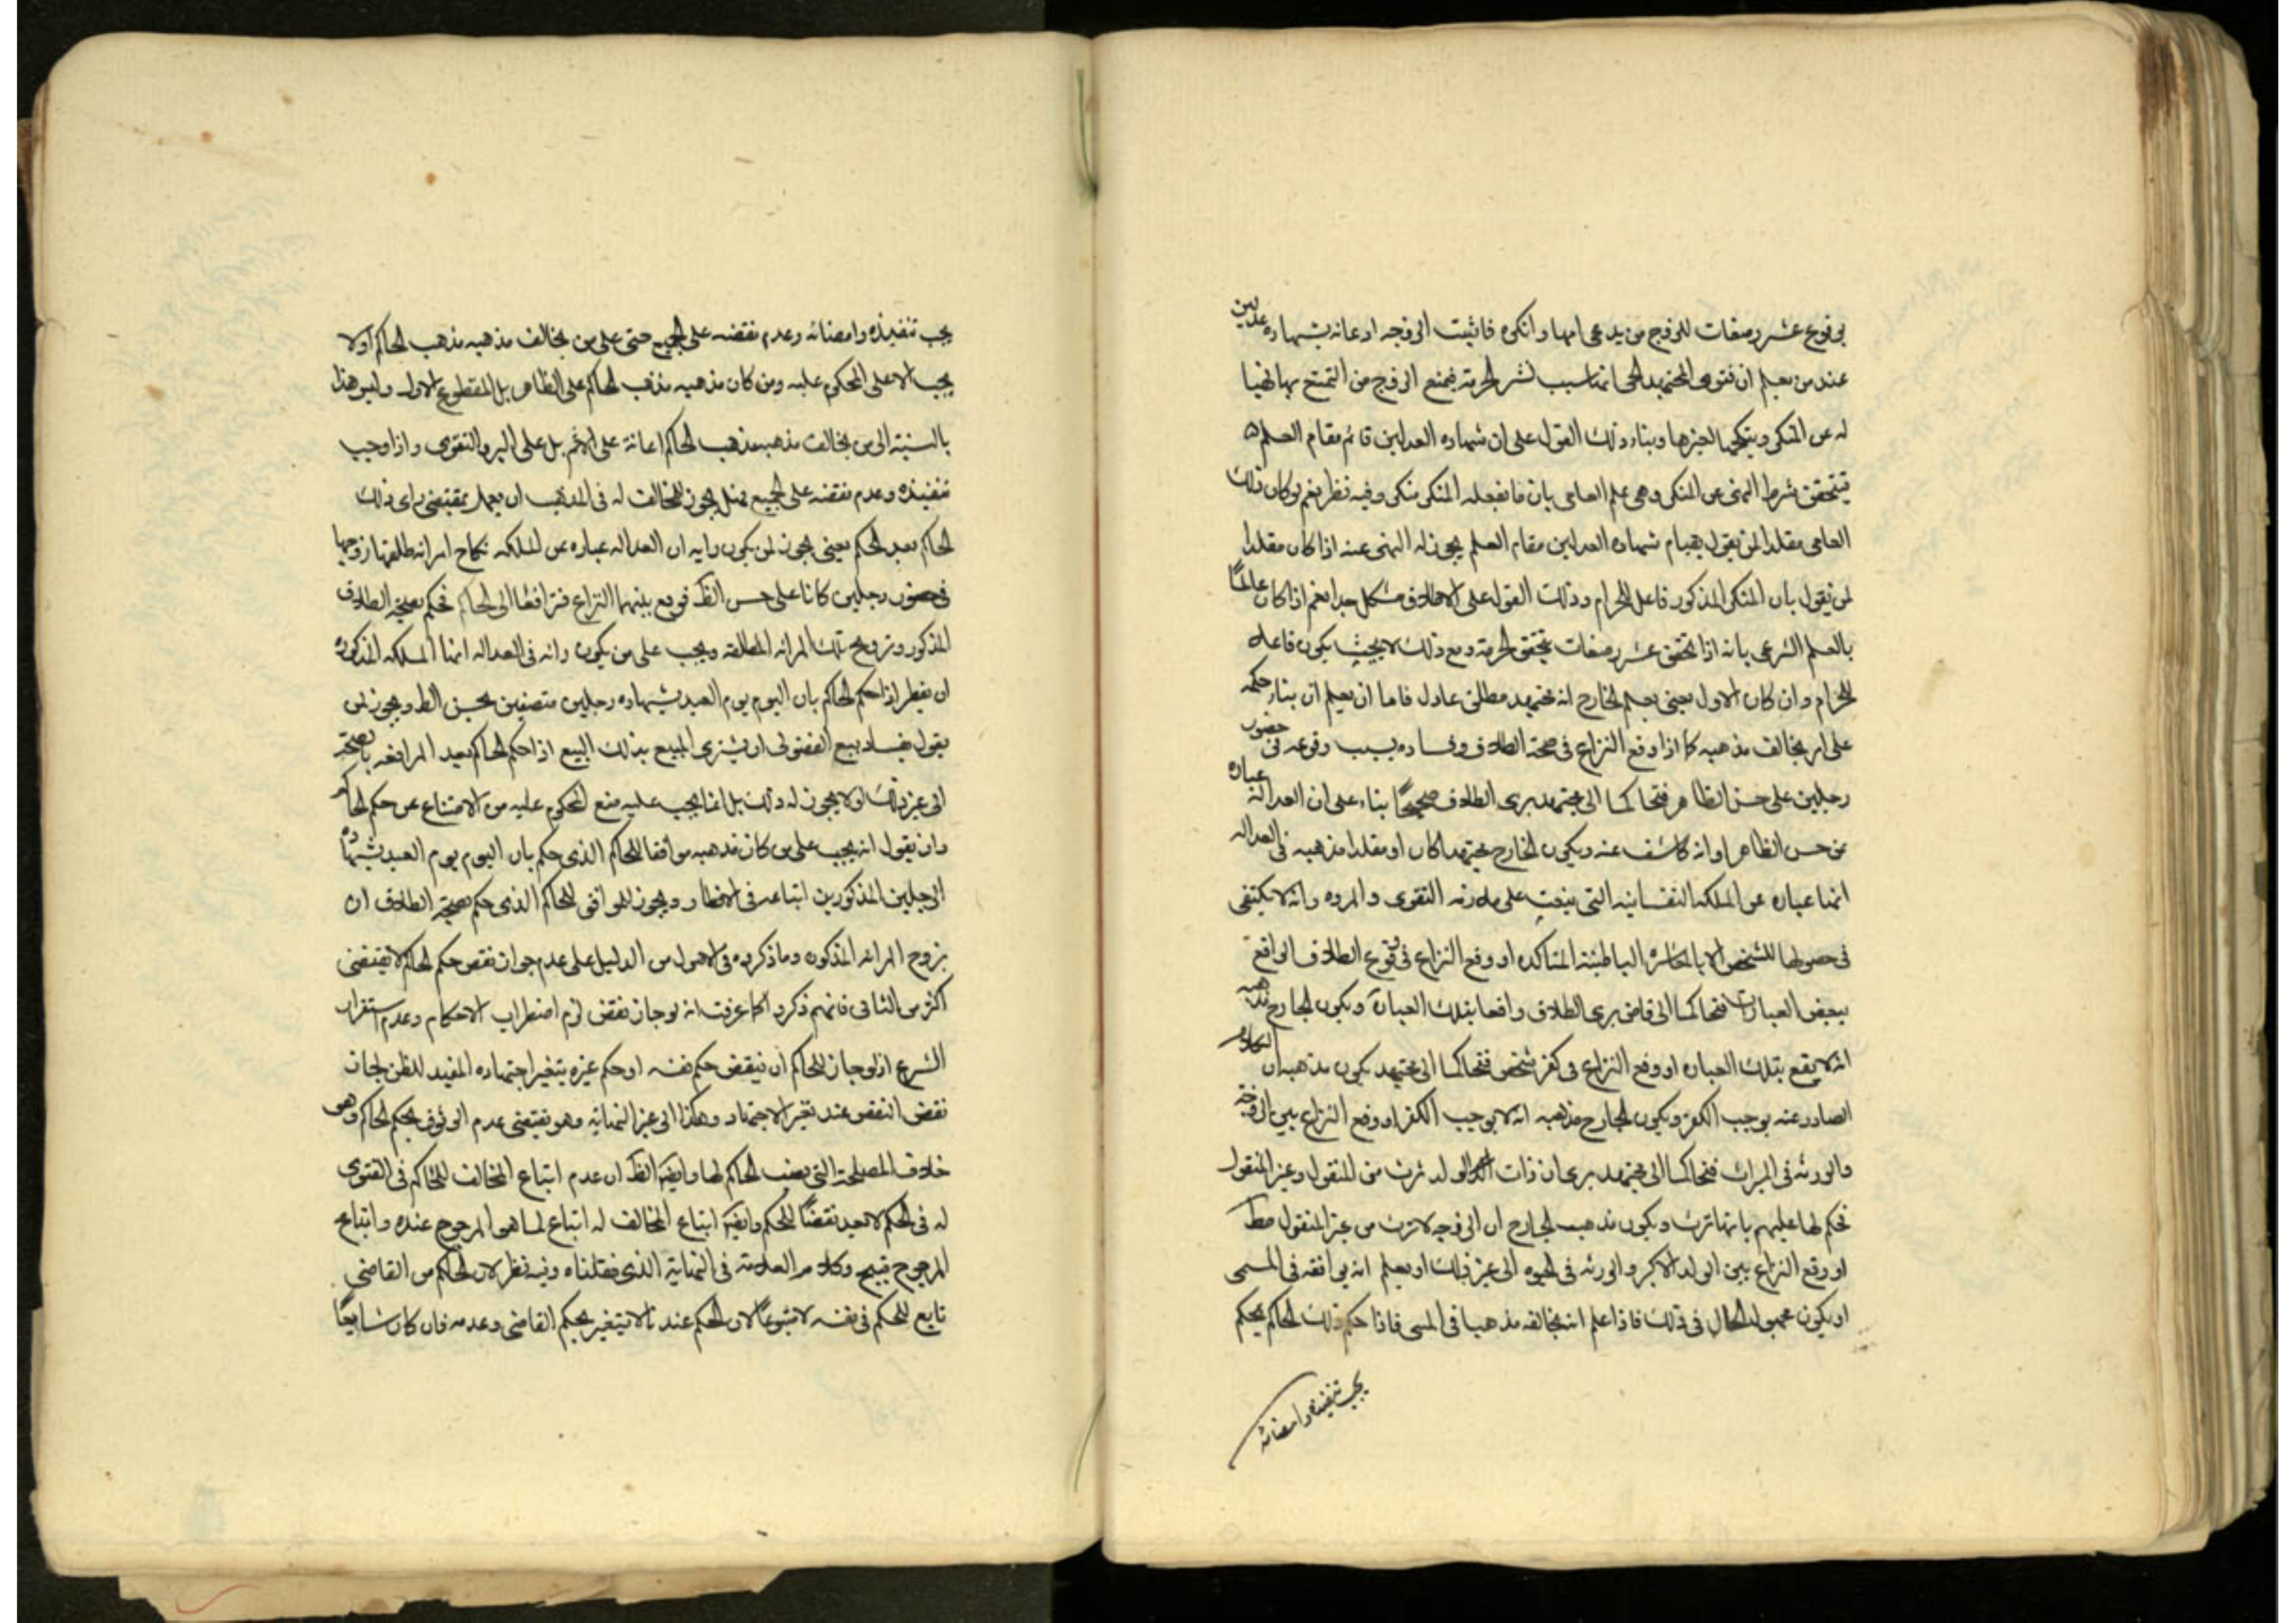 بوقوع عشر رضعات للزوج من يدعى امها وانكره فاثبت الزوجه ادعائه بشهاده عدلين
عند من يعلم ان فتوى المجتهد الحى انها سبب لنشر الحرمة فيمنع الزوج من التمتع بها نهيا
له عن المنكر وينكحها لغيرها وبناء ذلك القول على ان شهاده العدلين قائم مقام العلم
فيتحقق شرط النهى عن المنكر وهى علم الناهى بان ما يفعله المنكر منكر وفيه نظر نعم لو كان ذلك
العامى مقلدا لمن يقول بقيام شهاده العدلين مقام العلم يجوز له النهى عنه اذا كان مقلدا
لمن يقول بان المنكر المذكور فاعل للحرام وذلك القول على الاطلاق مشكل جدا نعم اذا كان عالمًا
بالعلم الشرعى بانه اذا تحقق عشر رضعات يتحقق الحرمة ومع ذلك لا يجتنب يكون فاعله
للحرام وان كان الاول يعنى يعلم الخارج انه مجتهد مطلق عادل فاما ان يعلم ان بناء حكمه
على امر يخالف مذهبه كما اذا وقع النزاع فى صحة الطلاق وفساده بسبب وقوعه فى حضور
رجلين على حسن الظاهر فتحاكما الى مجتهد يرى الطلاق صحيحًا بناء على ان العدالة عباره
عن حسن الظاهر او انه كاشف عنه ويكون الخارج مجتهدا كان او مقلدا مذهبه فى العداله
انها عباره عن الملكه النفسانيه التى يبعث على ملازمه التقوى والمروه وانه لا يكتفى
فى حصولها للشخص الا بالمعاشره الباطنيه المتاكده او وقع النزاع فى وقوع الطلاق الواقع
ببعض العبارات فتحاكما الى قاض يرى الطلاق واقعا بتلك العبارة ويكون الخارج مذهبه
انه لا يقع بتلك العباره او وقع النزاع فى كفر شخص فتحاكما الى مجتهد يكون مذهبه ان الكلام
الصادر عنه يوجب الكفر ويكون الخارج مذهبه انه لا يوجب الكفر او وقع النزاع بين الزوجة
والورثه فى الميراث فتحاكما الى مجتهد يرى ان ذات الولد ترث من المنقول وغير المنقول
فحكم لها عليهم بانها ترث ويكون مذهب الخارج ان الزوجه لا ترث من غير المنقول مط
او وقع النزاع بين الولد الاكبر والورثه فى الحبوه الى غير ذلك او يعلم انه يوافقه فى المسى
او يكون مجهول الحال فى ذلك فاذا علم انه يخالفه مذهبا فى المسى فاذا حكم ذلك الحاكم بحكم
يجب تنفيذه وامضائه
يجب تنفيذه وامضائه وعدم نقضه على الجميع حتى على من يخالف مذهبه مذهب الحاكم او لا
يجب الا على المحكوم عليه ومن كان مذهبه مذهب الحاكم على الظاهر بل المقطوع الاول وليس هذا
بالنسبة الى من يخالف مذهبه مذهب الحاكم اعانة على الاثم بل على البر والتقوى واذا وجب
تنفيذه وعدم نقضه على الجميع فهل يجوز للمخالف له فى المذهب ان يعمل بمقتضى راى ذلك
الحاكم بعد الحكم يعنى يجوز لمن يكون رايه ان العداله عباره عن الملكه نكاح امرائه طلقها زوجها
فى حضور رجلين كانا على حسن الظ فوقع بينهما النزاع فترافعا الى الحاكم فحكم بصحة الطلاق
المذكور وتزويج تلك المرائه المطلقه ويجب على من يكون رائه فى العداله انها الملكه المذكوره
ان يفطر اذا حكم الحاكم بان اليوم يوم العيد بشهاده رجلين متصفين بحسن الظ ويجوز لمن
يقول بفساد بيع الفضولى ان يشترى المبيع بذلك البيع اذا حكم الحاكم بعد المرافعه بصحته
الى غير ذلك او لا يجوز له ذلك بل انما يجب عليه منع المحكوم عليه من الامتناع عن حكم الحاكم
وان يقول انه يجب على من كان مذهبه موافقا للحاكم الذى حكم بان اليوم يوم العيد بشهادة
الرجلين المذكورين اتباعه فى الافطار ويجوز للموافق للحاكم الذى حكم بصحة الطلاق ان
يزوج المرائه المذكوره وما ذكروه فى الاصول من الدليل على عدم جواز نقض حكم الحاكم لا يقتضى
اكثر من الثانى فانهم ذكروا كما عرفت انه لو جاز نقض لزم اضطراب الاحكام وعدم استقرار
الشرع اذ لو جاز للحاكم ان ينقض حكم نفسه او حكم غيره بتغير اجتهاده المفيد للظن لجاز
نقض النقض عند تغير الاجتهاد وهكذا الى غير النهاية وهو يقتضى عدم الوثوق بحكم الحاكم وهو
خلاف المصلحة التى نصب الحاكم لها وايضا الظ ان عدم اتباع المخالف للحاكم فى الفتوى
له فى الحكم لا يعد نقضًا للحكم وايضا اتباع المخالف له اتباع لما هو المرجوح عنده واتباع
المرجوح قبيح وكلام العلامة فى النهاية الذى نقلناه وفيه نظر لان الحاكم من القاضى
تابع للحكم فى نفسه لا متبوعًا لان الحكم عندنا لا يتغير بحكم القاضى وعدمه فان كان سايغًا